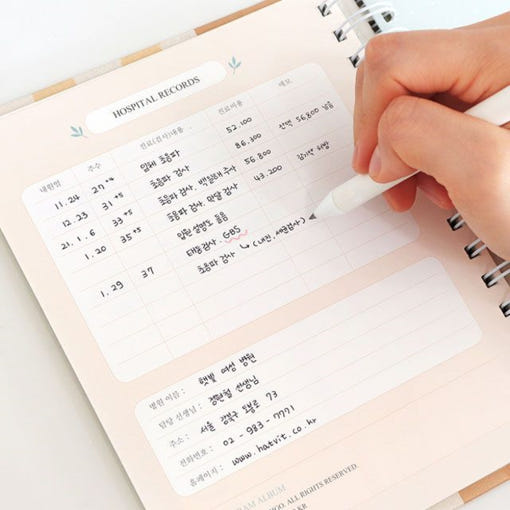 HOSPITAL RECORDS
내원일 주수 진료(검사)내용 진료비용 메모
11.24 27+4 입체 초음파 52.100
12.23 31+5 초음파 검사. 백일해 주사 86.300 잔액 56,800 남음
21.1.6 33+5 초음파 검사. 막달 검사 56.800
1.20 35+5 입원 설명도 들음 43.200
태동검사. GBS
1.29 37 초음파 검사 (내진, 세균검사)
병원 이름: 햇빛 여성 병원
담당 선생님: 정현철 선생님
주소: 서울 강북구 도봉로 73
전화번호: 02-983-7771
홈페이지: www.hatvit.co.kr
RAM ALBUM
OO. ALL RIGHTS RESERVED.
KR